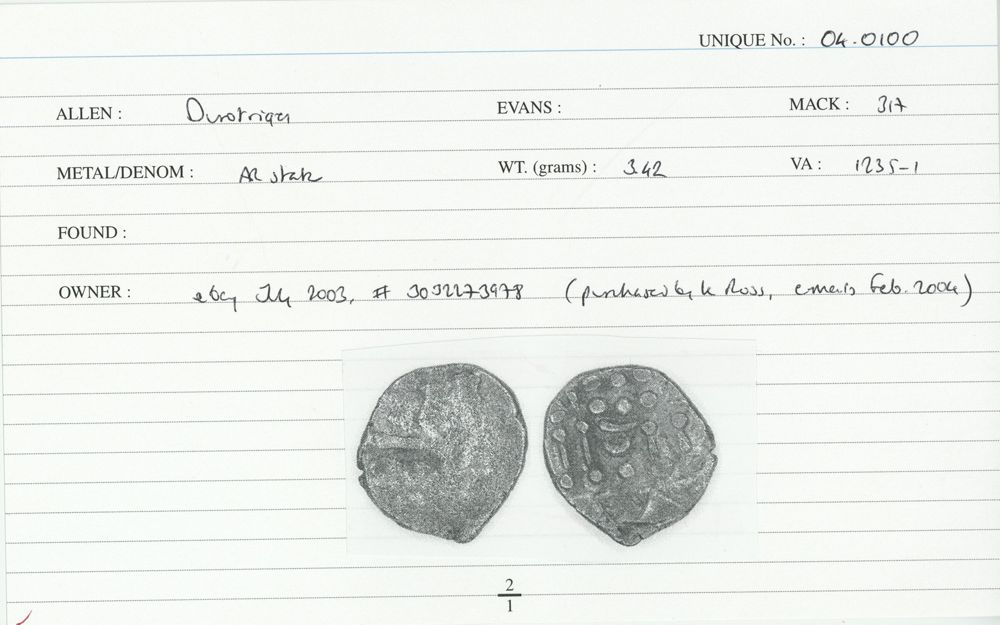 UNIQUE No. : 04.0100
ALLEN : Durotriges EVANS : MACK : 317
METAL/DENOM : AR stater WT. (grams) : 3.42 VA : 1235-1
FOUND :
OWNER : ebay July 2003, # 3032273978 (purchased by K Ross, emails Feb. 2004)
2
1